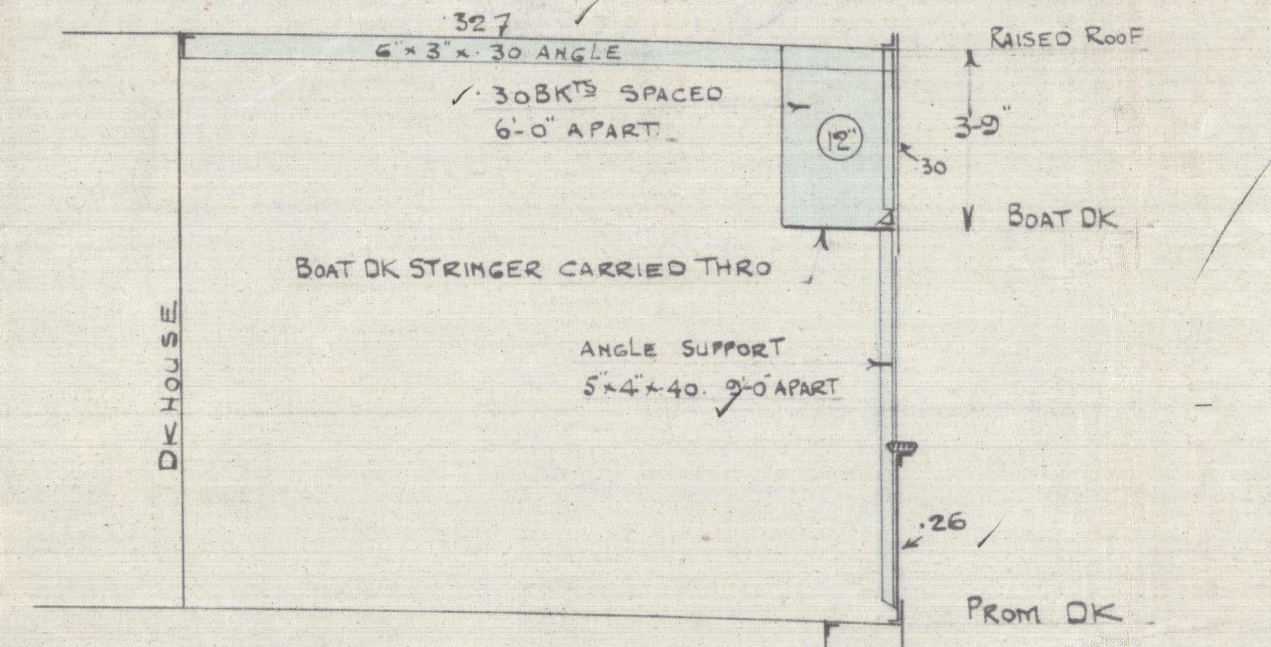 327
6"x 3"x .30 ANGLE
RAISED ROOF
.30 BKTS SPACED
6'-0" APART
12"
3-9"
30
BOAT DK
BOAT DK STRINGER CARRIED THRO
DK HOUSE
ANGLE SUPPORT
5"x4"x.40. 9'-0" APART
.26
PROM DK